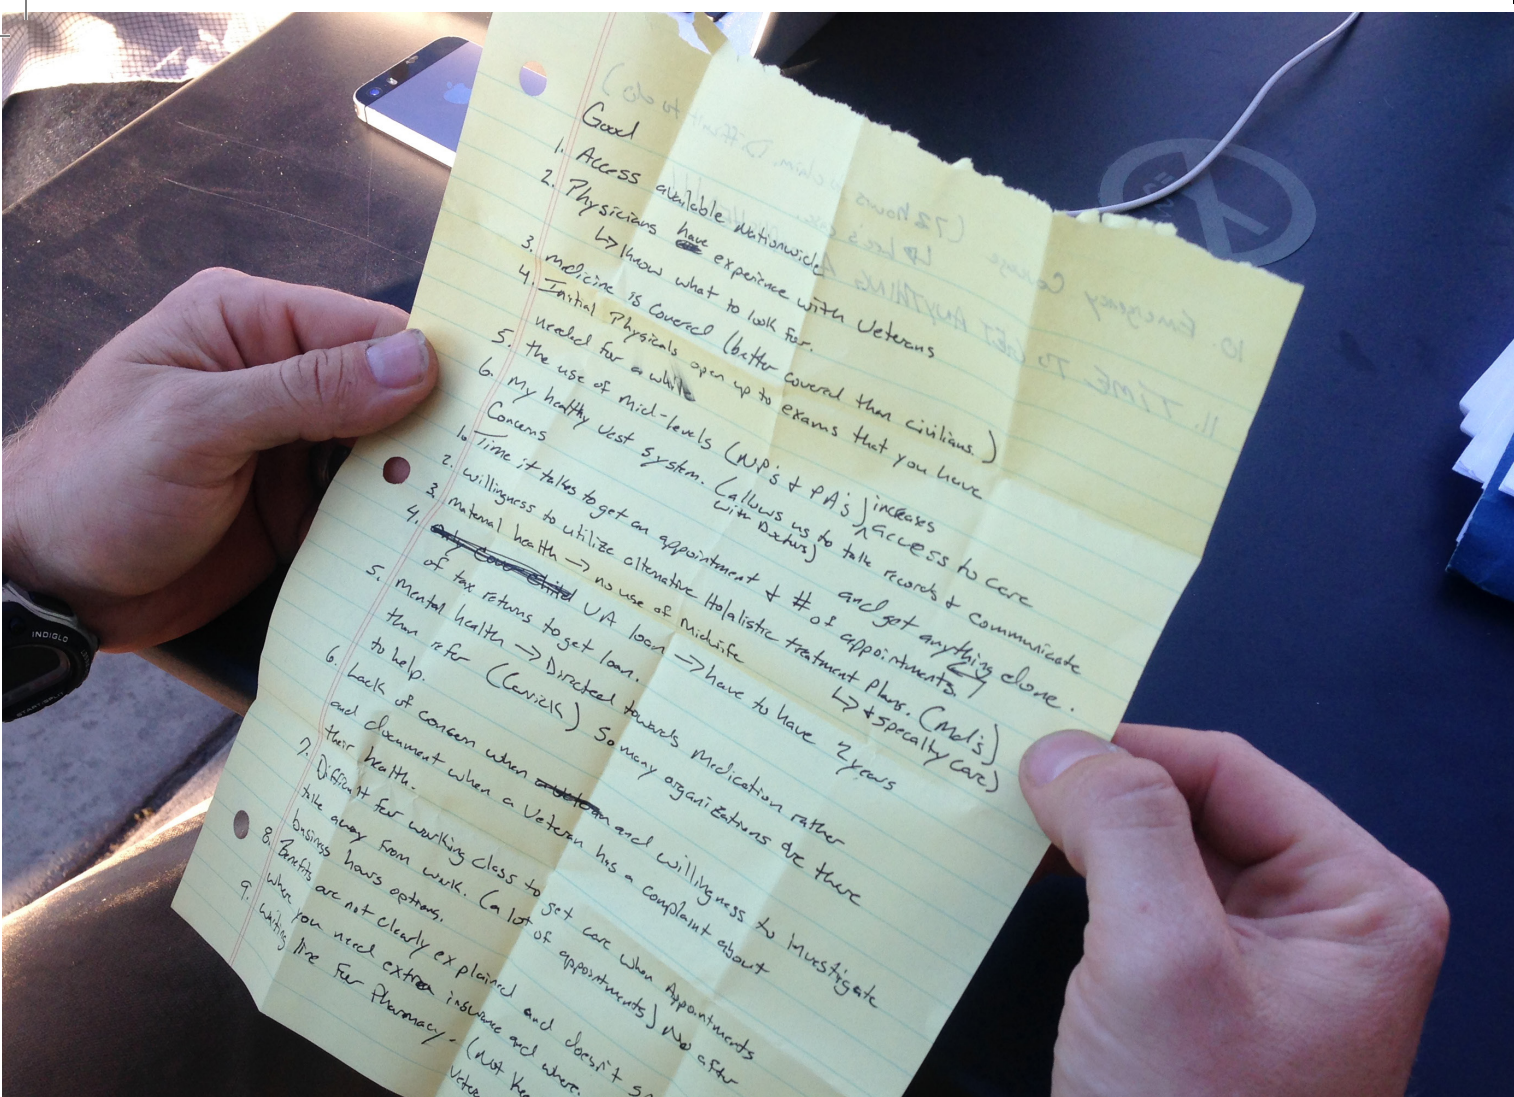 Good
1. Access available Nationwide
2. Physicians have experience with Veterans
↳ Know what to look for.
3. medicine is covered (better covered than civilians.)
4. Initial Physicals open up to exams that you have
needed for a while
5. the use of mid-levels (NP's & PA's) increases access to care
6. My healthy vest system. (allows us to talk records & communicate
with Doctors) and get anything done.
Concerns
1. Time it takes to get an appointment & # of appointments.
2. willingness to utilize alternative Holalistic treatment plans. (Md's)
↳ & specialty care)
3. maternal health → no use of Midwife
4. VA loan → have to have 2 years
of tax returns to get loan.
5. mental health → Directed towards Medication rather
than refer ( ) So many organizations are there
to help.
6. Lack of concern when and willingness to investigate
and document when a Veteran has a complaint about
their health.
7. Difficult for working class to get care when Appointments
take away from work. (a lot of appointments) No after
business hours options.
8. Benefits are not clearly explained and doesn't
where you need extra insurance and where. (Not
9. waiting line for Pharmacy.
10. Emergency Coverage (72 hours to claim. Difficult to do)
11. TIME TO GET ANYTHING
INDIGLO